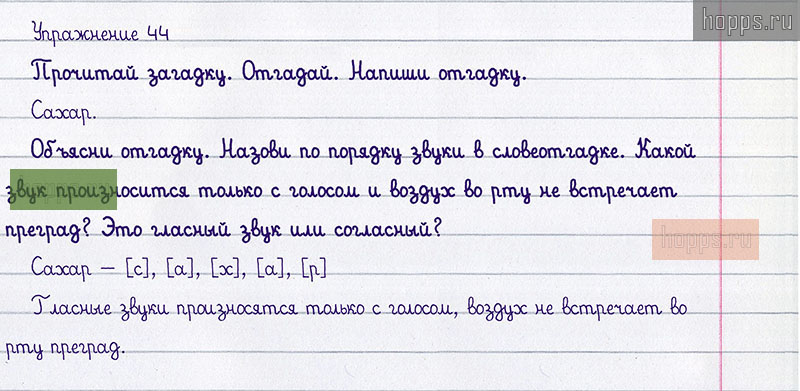 hopps.ru
Упражнение 44
Прочитай загадку. Отгадай. Напиши отгадку.
Сахар.
Объясни отгадку. Назови по порядку звуки в словеотгадке. Какой
звук произносится только с голосом и воздух во рту не встречает
преград? Это гласный звук или согласный?
hopps.ru
Сахар – [с], [а], [х], [а], [р]
Гласные звуки произносятся только с голосом, воздух не встречает во
рту преград.